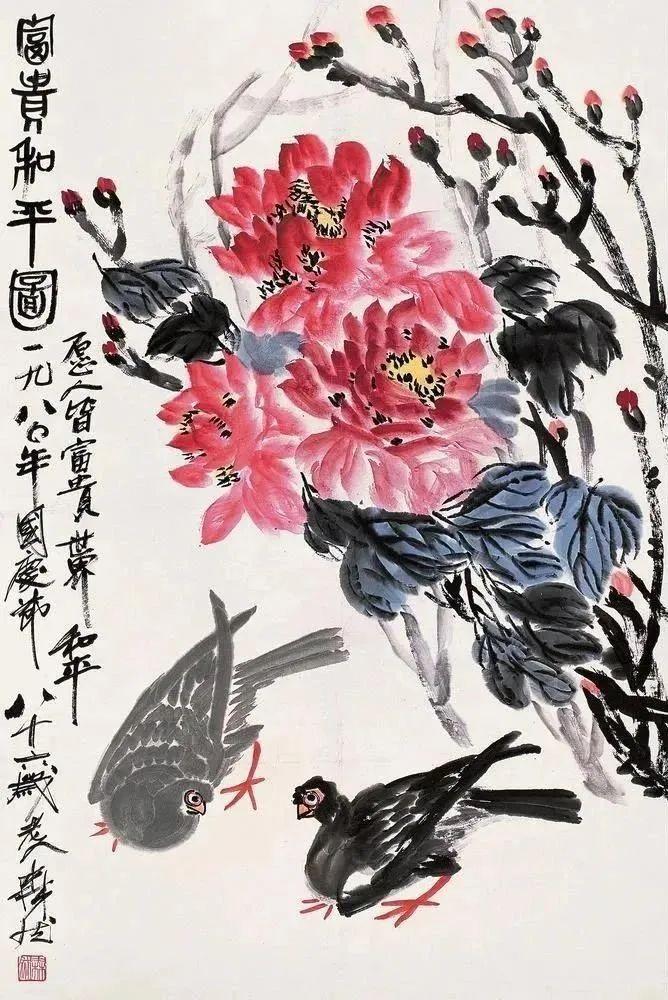 富貴和平圖
愿人皆富貴世界和平
一九八〇年國慶節 八十六歲老人